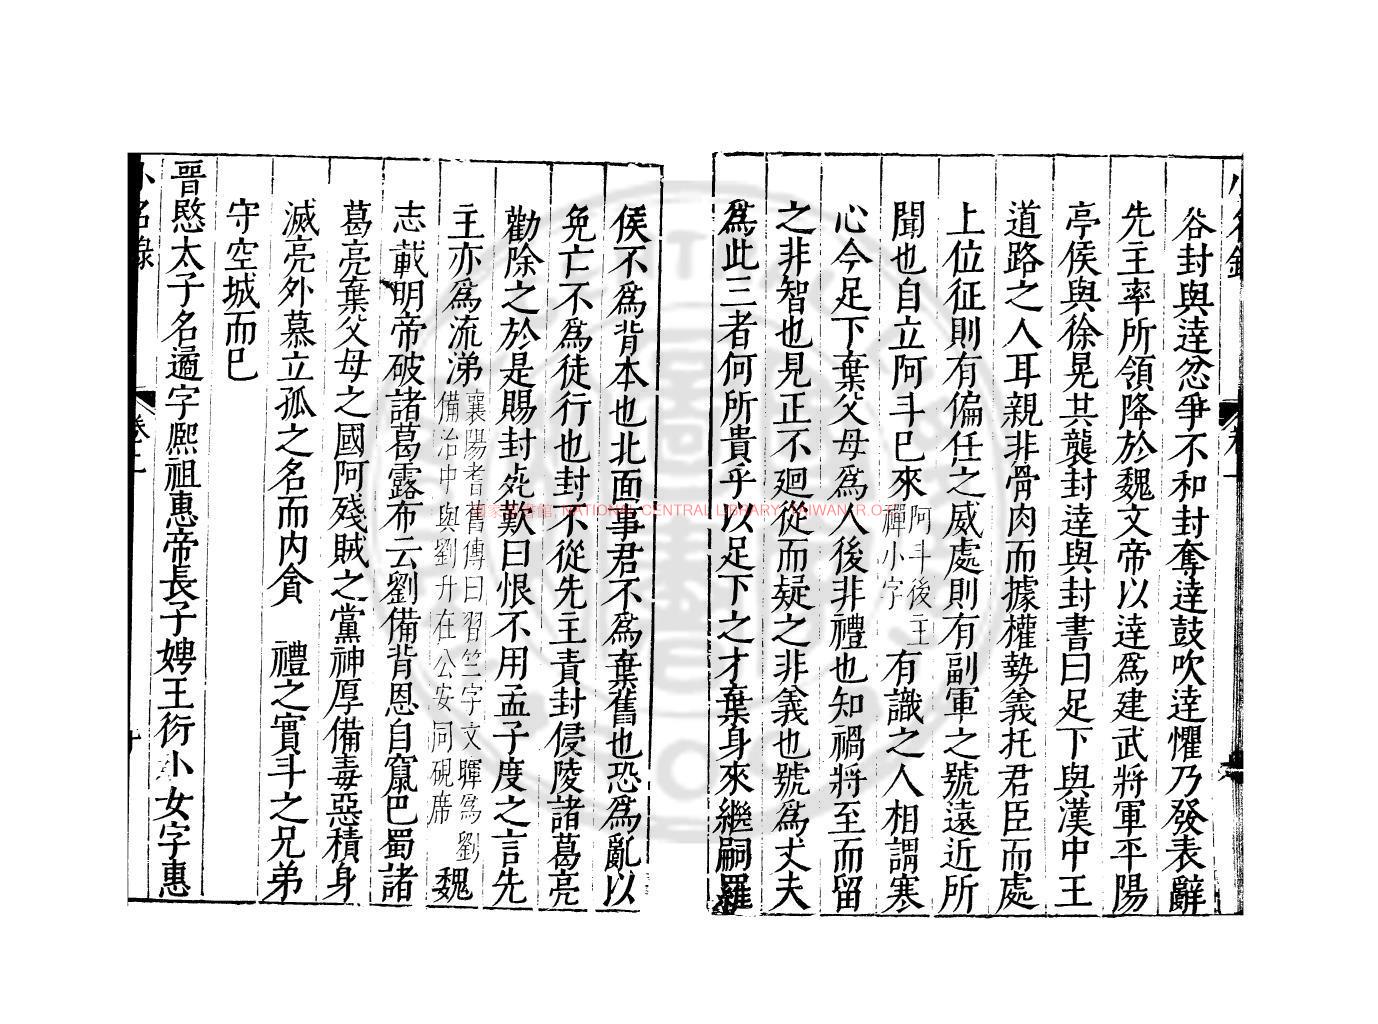 谷封與逹忿爭不和封奪逹鼓吹逹懼乃發表辭
先主率所領降於魏文帝以逹爲建武將軍平陽
亭侯與徐晃共襲封逹與封書曰足下與漢中王
道路之人耳親非骨肉而據權勢義托君臣而處
上位征則有偏任之威處則有副軍之號遠近所
聞也自立阿斗巳來阿斗後主禪小字有識之人相謂寒
心今足下棄父母爲人後非禮也知禍將至而留
之非智也見正不廻從而疑之非義也號爲丈夫
爲此三者何所貴乎以足下之才棄身來繼嗣羅
侯不爲背本也北面事君不爲棄舊也恐爲亂以
免亡不爲徒行也封不從先主責封侵陵諸葛亮
勸除之於是賜封死歎曰恨不用孟子度之言先
主亦爲流涕襄陽耆舊傳曰習竺字文暉爲劉備治中與劉升在公安同硯席魏
志載明帝破諸葛露布云劉備背恩自竄巴蜀諸
葛亮棄父母之國阿殘賊之黨神厚備毒惡積身
滅亮外慕立孤之名而内貪 禮之實斗之兄弟
守空城而巳
晉愍太子名遹字熙祖惠帝長子娉王衍小女字惠
小名錄
卷二
國家圖書館, NATIONAL CENTRAL LIBRARY, TAIWAN (R.O.C)